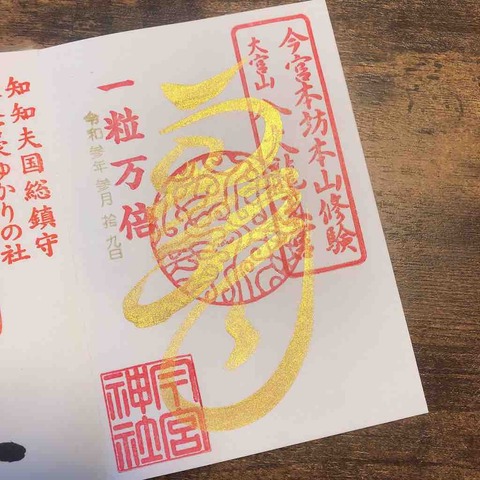 今宮本坊本山修験
大宮山 八大龍王宮
一粒万倍
令和参年参月拾九日
今宮
神社
知知夫国総鎮守
ゆかりの社